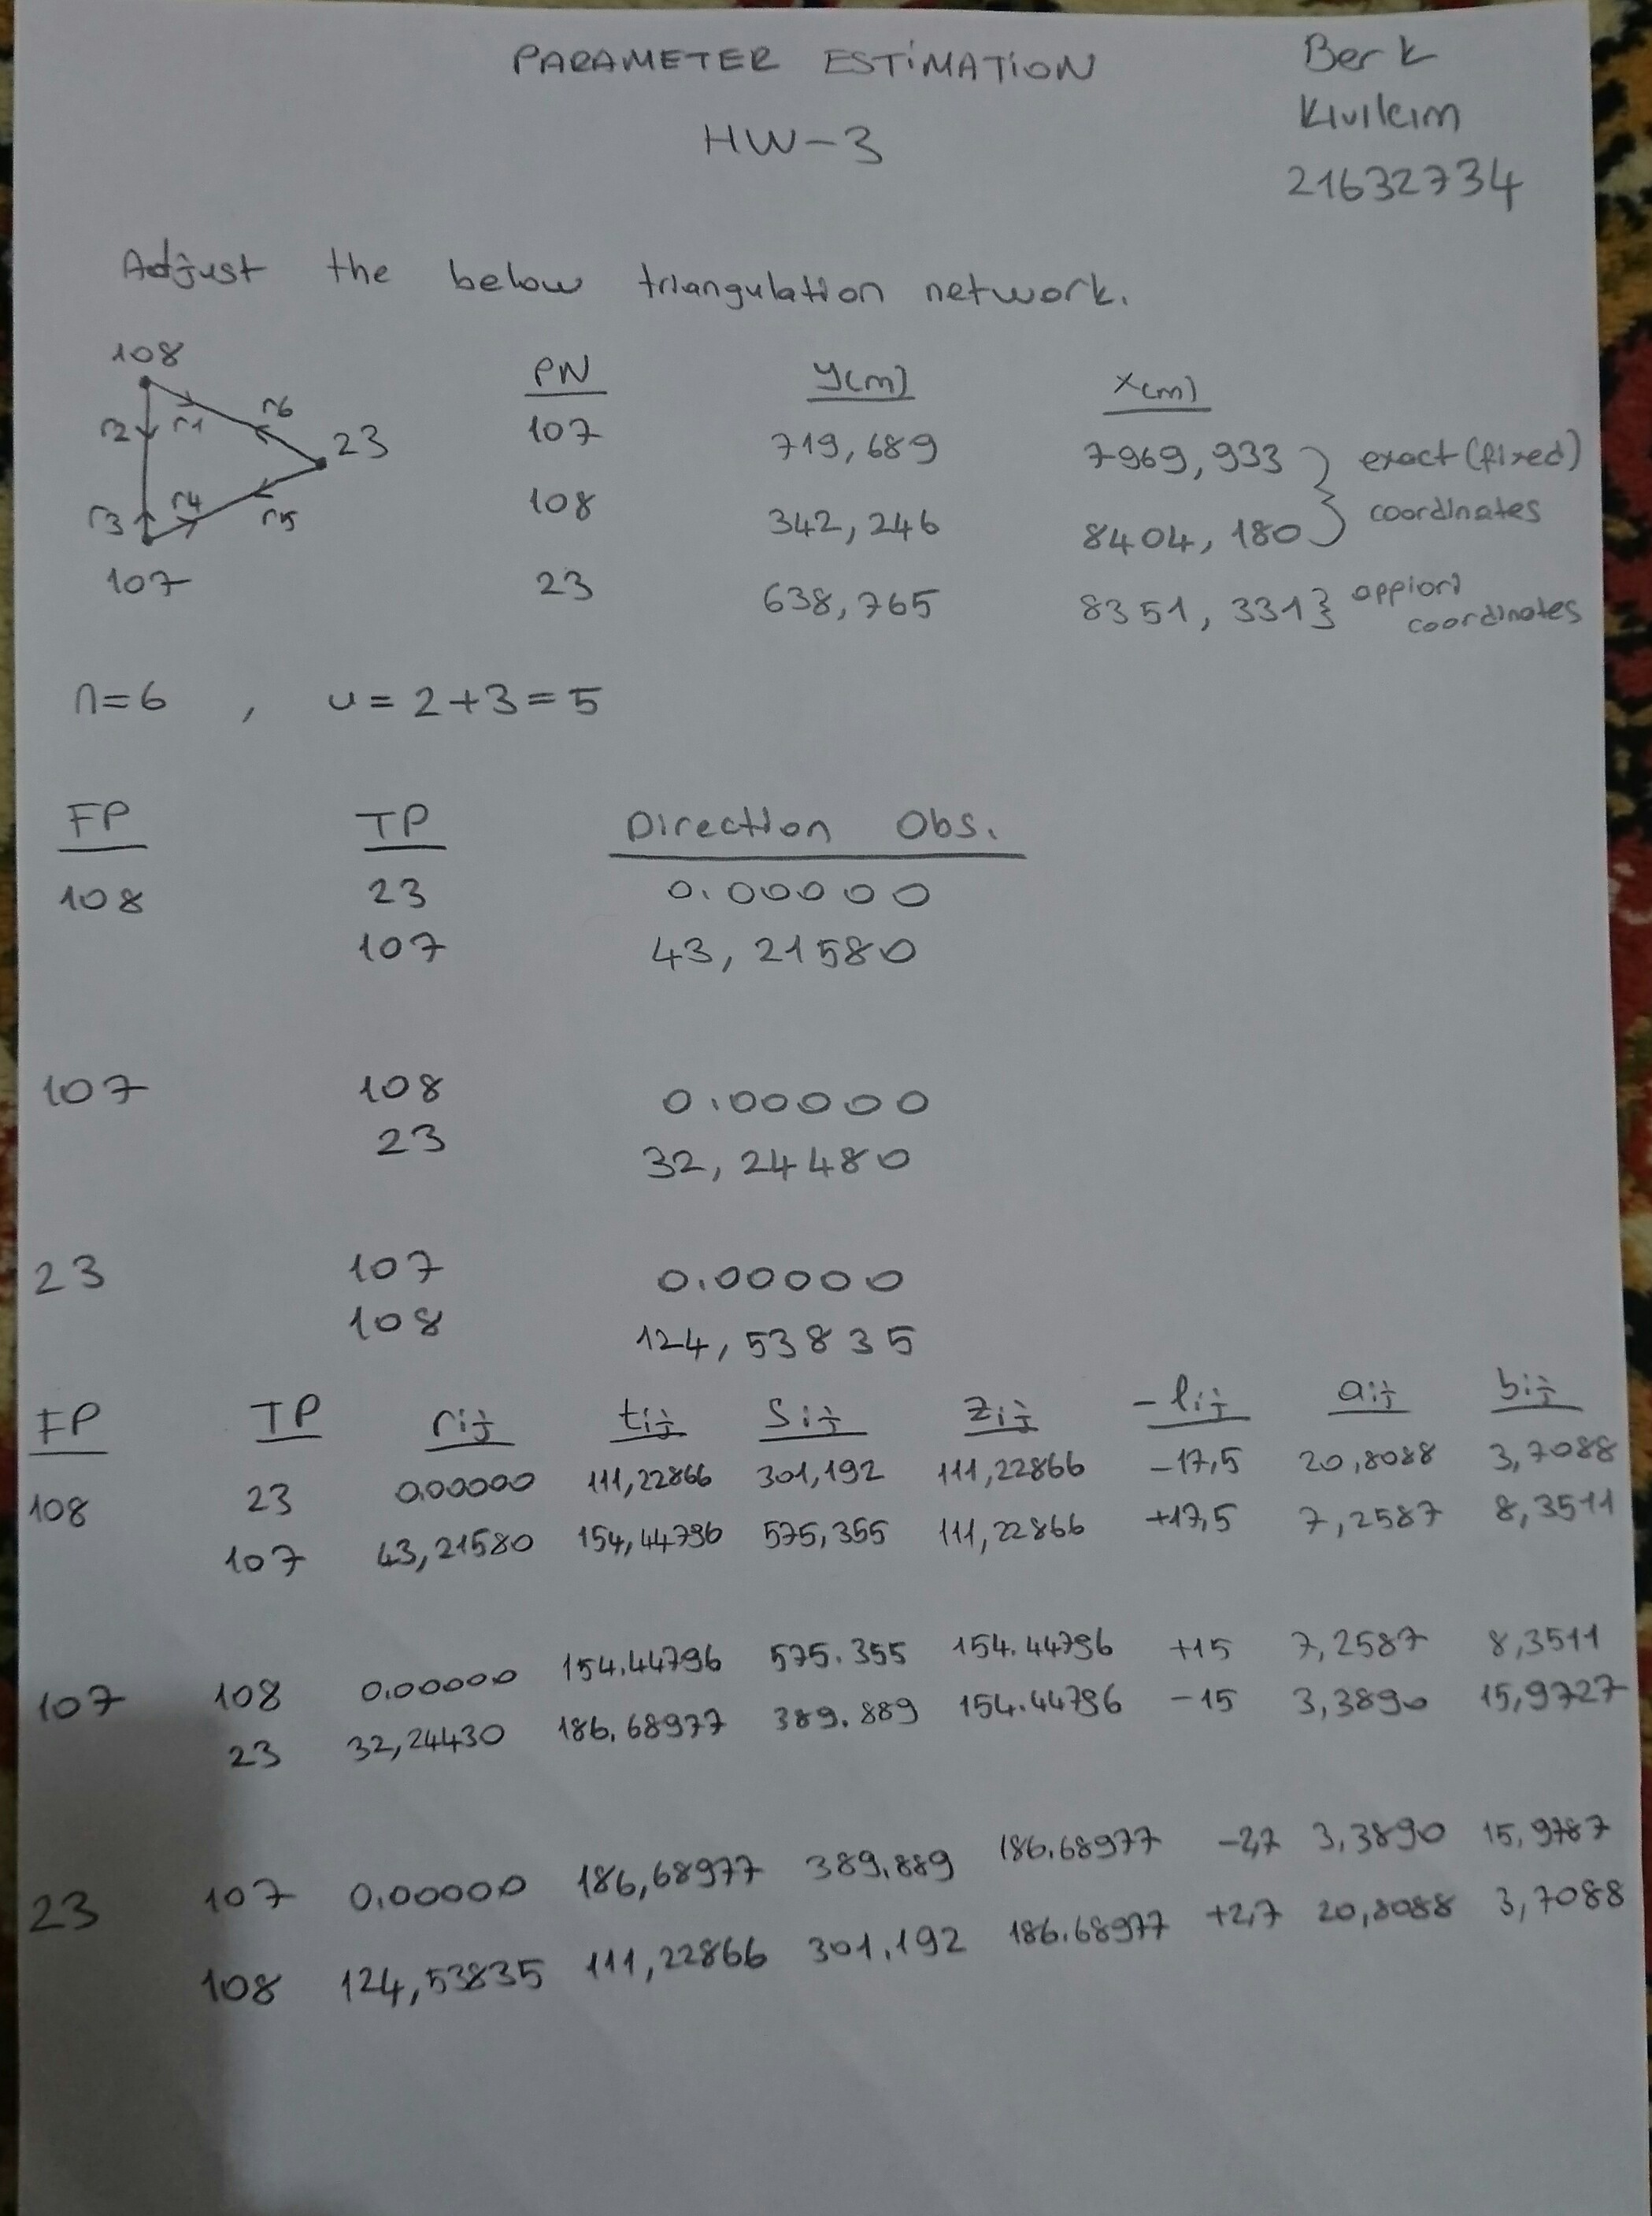 PARAMETER ESTİMATİON
Berk
Kıvılcım
21632734
HW-3
Adjust the below triangulation network.
108
r2 r1 r6 23
r3 r4 r5
107
PN y(m) x(m)
107 719,689 7969,933 } exact (fixed)
108 342,246 8404,180 } coordinates
23 638,765 8351,331 } appiori
coordinates
n=6 , u = 2+3 = 5
FP TP Direction Obs.
108 23 0.00000
107 43,21580
107 108 0.00000
23 32,24480
23 107 0.00000
108 124,53835
FP TP rij tij Sij zij -lij aij bij
108 23 0,00000 111,22866 301,192 111,22866 -17,5 20,8088 3,7088
107 43,21580 154,44796 575,355 111,22866 +17,5 7,2587 8,3511
107 108 0.00000 154.44796 575.355 154.44796 +15 7,2587 8,3511
23 32,24430 186,68977 389.889 154.44796 -15 3,3890 15,9727
23 107 0,00000 186,68977 389,889 186.68977 -2,7 3,3890 15,9787
108 124,53835 111,22866 301,192 186.68977 +2,7 20,8088 3,7088